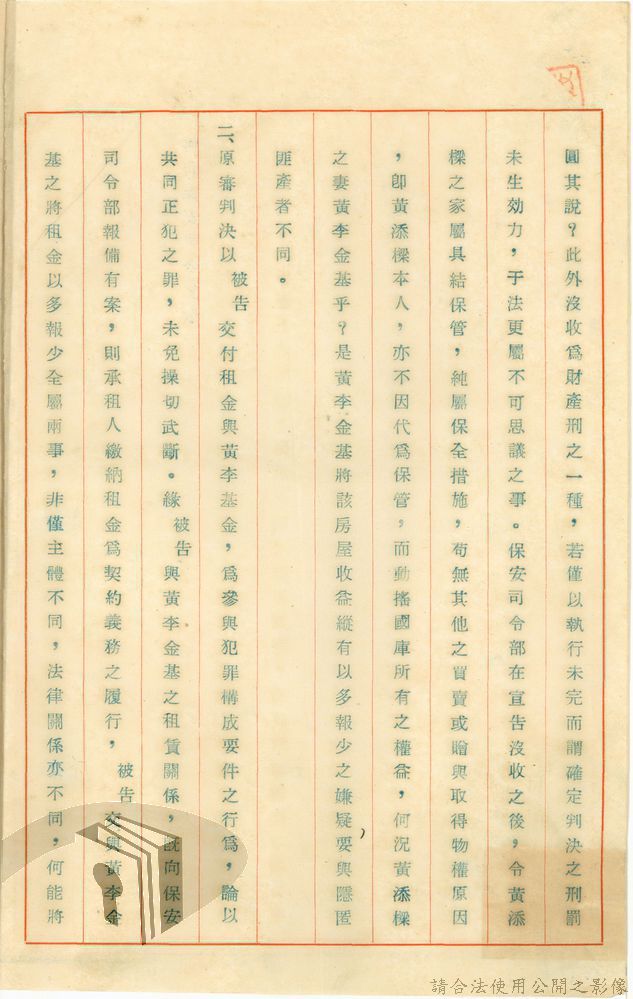 圓其說？此外沒收爲財產刑之一種，若僅以執行未完而謂確定判決之刑罰
未生効力，于法更屬不可思議之事。保安司令部在宣告沒收之後，令黃添
樑之家屬具結保管，純屬保全措施，苟無其他之買賣或贈與取得物權原因
，卽黃添樑本人，亦不因代爲保管，而動搖國庫所有之權益，何況黃添樑
之妻黃李金基乎？是黃李金基將該房屋收益縱有以多報少之嫌疑要與隱匿
匪產者不同。
二、原審判決以被告交付租金與黃李基金，爲參與犯罪構成要件之行爲，論以
共同正犯之罪，未免操切武斷。緣被告與黃李金基之租賃關係，旣向保安
司令部報備有案，則承租人繳納租金爲契約義務之履行，被告交與黃李金
基之將租金以多報少全屬兩事，非僅主體不同，法律關係亦不同，何能將
請合法使用公開之影像